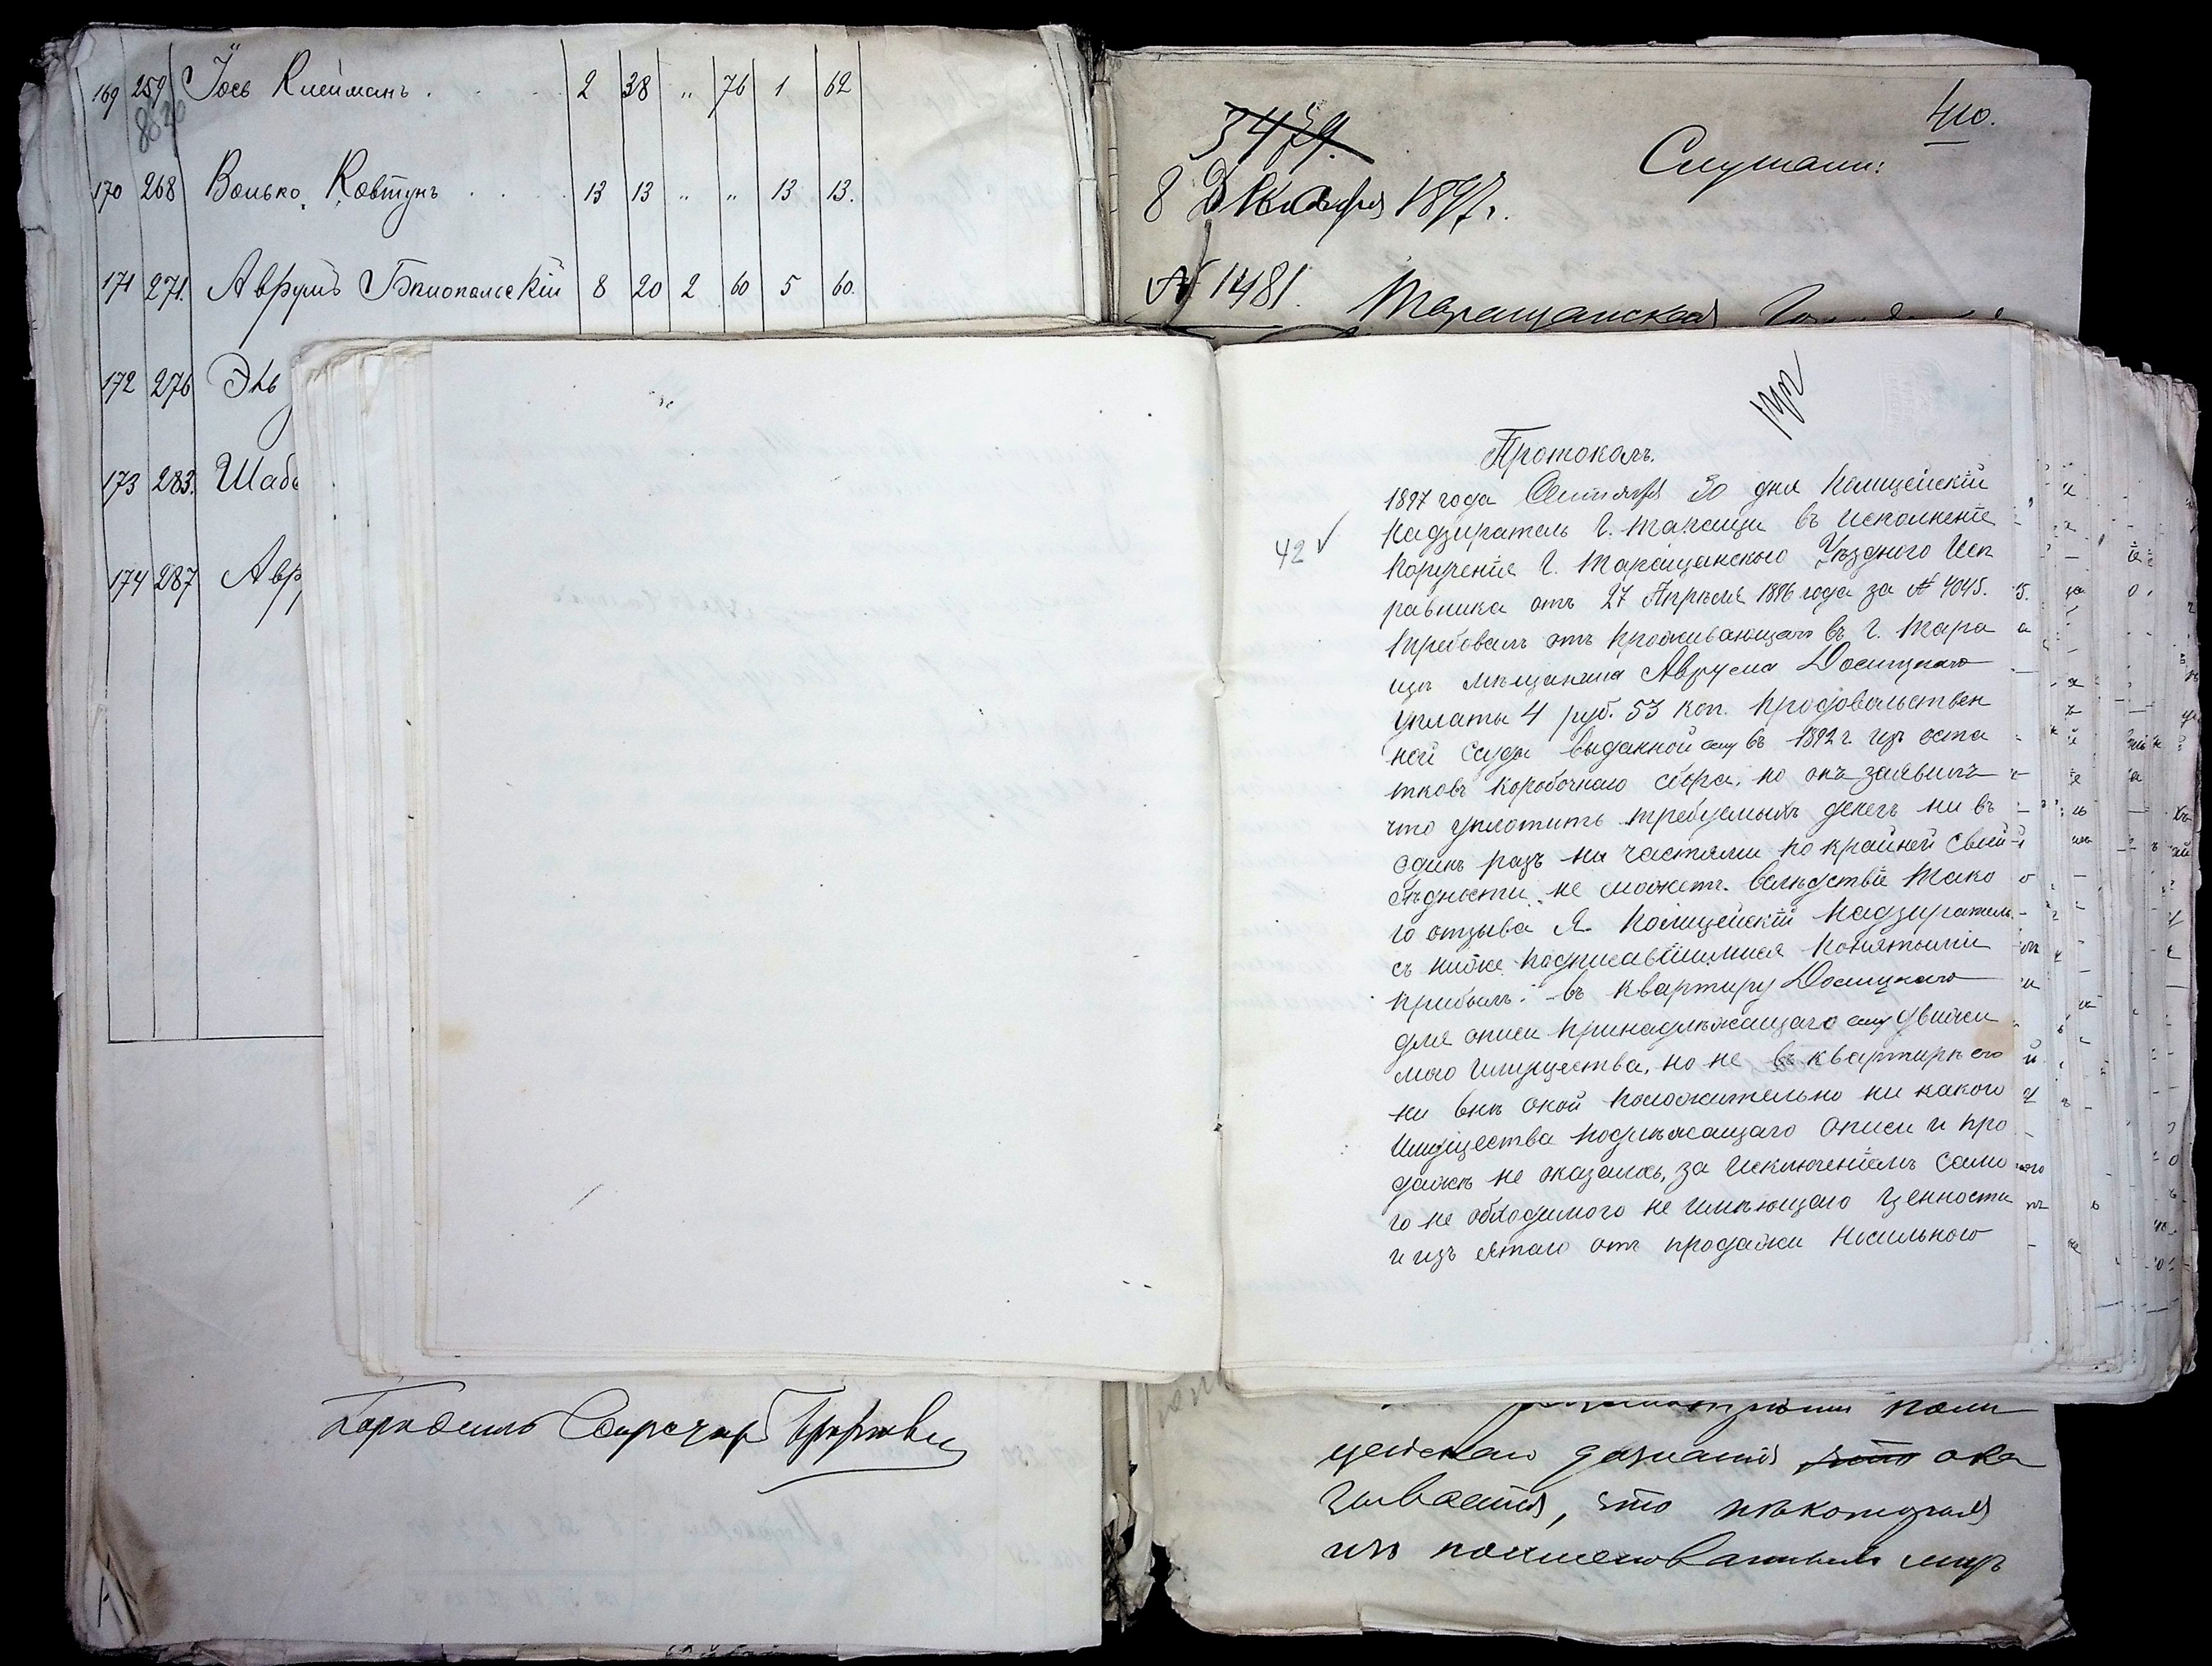 169 259 Іось Клейманъ . . . 2 38 " 76 1 62
8820
170 268 Волько Ковтунъ . . . 13 13 " " 13 13.
171 271. Аврумъ Бѣлопольскій 8 20 2 60 5 60.
172 276
173 283. Шаб
174 287 Авр
410.
3479.
Слушали:
8 Декабря 1897 г.
№ 1481. Таращанская
Протоколъ.
42 ✓
1897 года Сентября 30 дня Полицейскій
Надзиратель г. Таращи въ исполненіе
порученія г. Таращанскаго Уѣзднаго Исп
равника отъ 27 Апрѣля 1896 года за № 4045.
требовалъ отъ проживающаго въ г. Тара
щѣ мѣщанина Аврума Досицкаго
уплаты 4 руб. 53 коп. продовольствен
ной суды выданной ему въ 1892 г. изъ оста
тковъ коробочнаго сбора, но онъ заявилъ
что уплотить требуемыхъ денегъ ни въ
одинъ разъ ни частями по крайней своей
бѣдности не можетъ. Вслѣдствіе тако
го отзыва Я. Полицейскій Надзиратель
съ ниже подписавшимися понятыми
прибылъ въ квартиру Досицкаго
для описи принадлѣжащаго ему движи
мого имущества, но не въ квартирѣ его
ни внѣ оной положительно ни какого
имущества подлѣжащаго описи и про
дажѣ не оказалось, за исключеніемъ само
го не обходимого не имѣющаго ценности
и изъ ятаго отъ продажи носильного
цейскаго дознанія что ока
зывается, что нѣкоторыя
изъ поименованныхъ лицъ